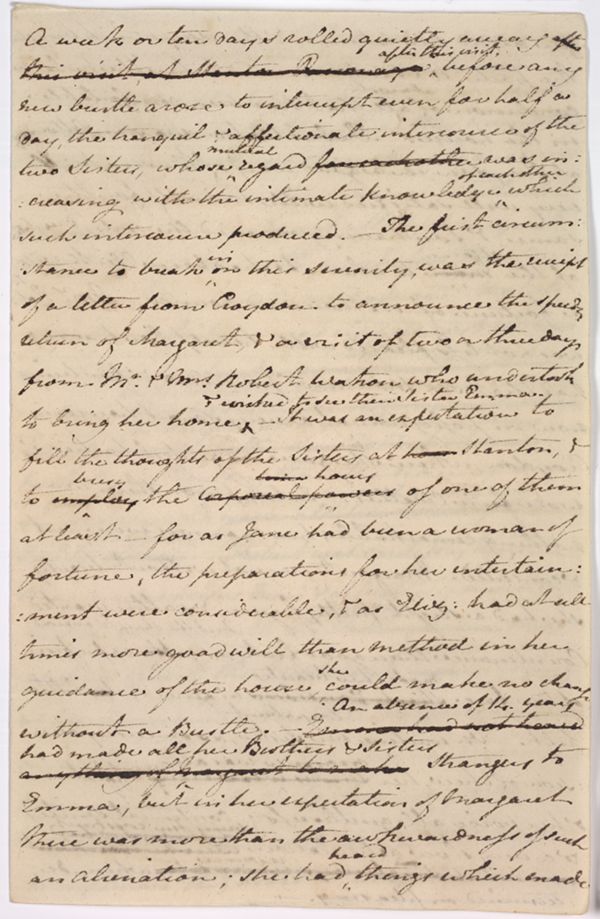 A week or ten days rolled quietly away after
after this visit,
this visit at Stanton Parsonage, before any
new bustle arose to interrupt even for half a
day, the tranquil & affectionate intercourse of the
mutual
two Sisters, whose regard for each other was in:
of each other
:creasing with the intimate knowledge which
such intercourse produced. — The first circum:
in
:stance to break on this serenity, was the receipt
of a letter from Croydon to announce the speedy
return of Margaret, & a visit of two or three days
from Mr. & Mrs Robert Watson, who undertook
& wished to see their Sister Emma.
to bring her home — It was an expectation to
fill the thoughts of the Sisters at Stanton, &
busy hours
to employ the corporeal powers of one of them
at least — for as Jane had been a woman of
fortune, the preparations for her entertain:
:ment were considerable, & as Eliz: had at all
times more good will than method in her
she
guidance of the house could make no change
An absence of 14 years
without a Bustle. — Emma had not heard
had made all her Brothers & Sisters
anything of Margaret to make Strangers to
Emma, but in her expectation of Margaret
there was more than the awkwardness of such
heard
an alienation; she had things which made